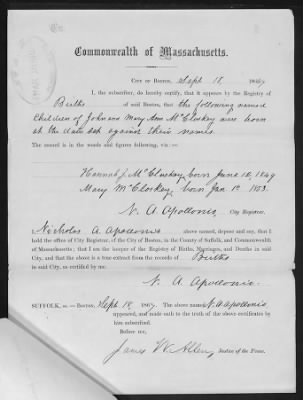 Commonwealth of Massachusetts.
City of Boston, Sept 18, 186
I, the subscriber, do hereby certify, that it appears by the Registry of
Births of said Boston, that the following named
Children of John and Mary Ann McCloskey were born
at the date set against their names.
The record is in the words and figures following, viz:—
Hannah J. McCloskey, born June 10, 1849
Mary McCloskey, born Jan 1st 1853.
N. A. Apollonio, City Registrar.
I, Nicholas A. Apollonio above named, depose and say, that I
hold the office of City Registrar, of the City of Boston, in the County of Suffolk, and Commonwealth
of Massachusetts; that I am the keeper of the Registry of Births, Marriages, and Deaths in said
City, and that the above is a true extract from the records of Births
in said City, as certified by me.
N. A. Apollonio.
SUFFOLK, ss.—Boston, Sept 18, 186 The above named N. A. Apollonio
appeared, and made oath to the truth of the above certificates by
him subscribed.
Before me,
James W. Allen, Justice of the Peace.